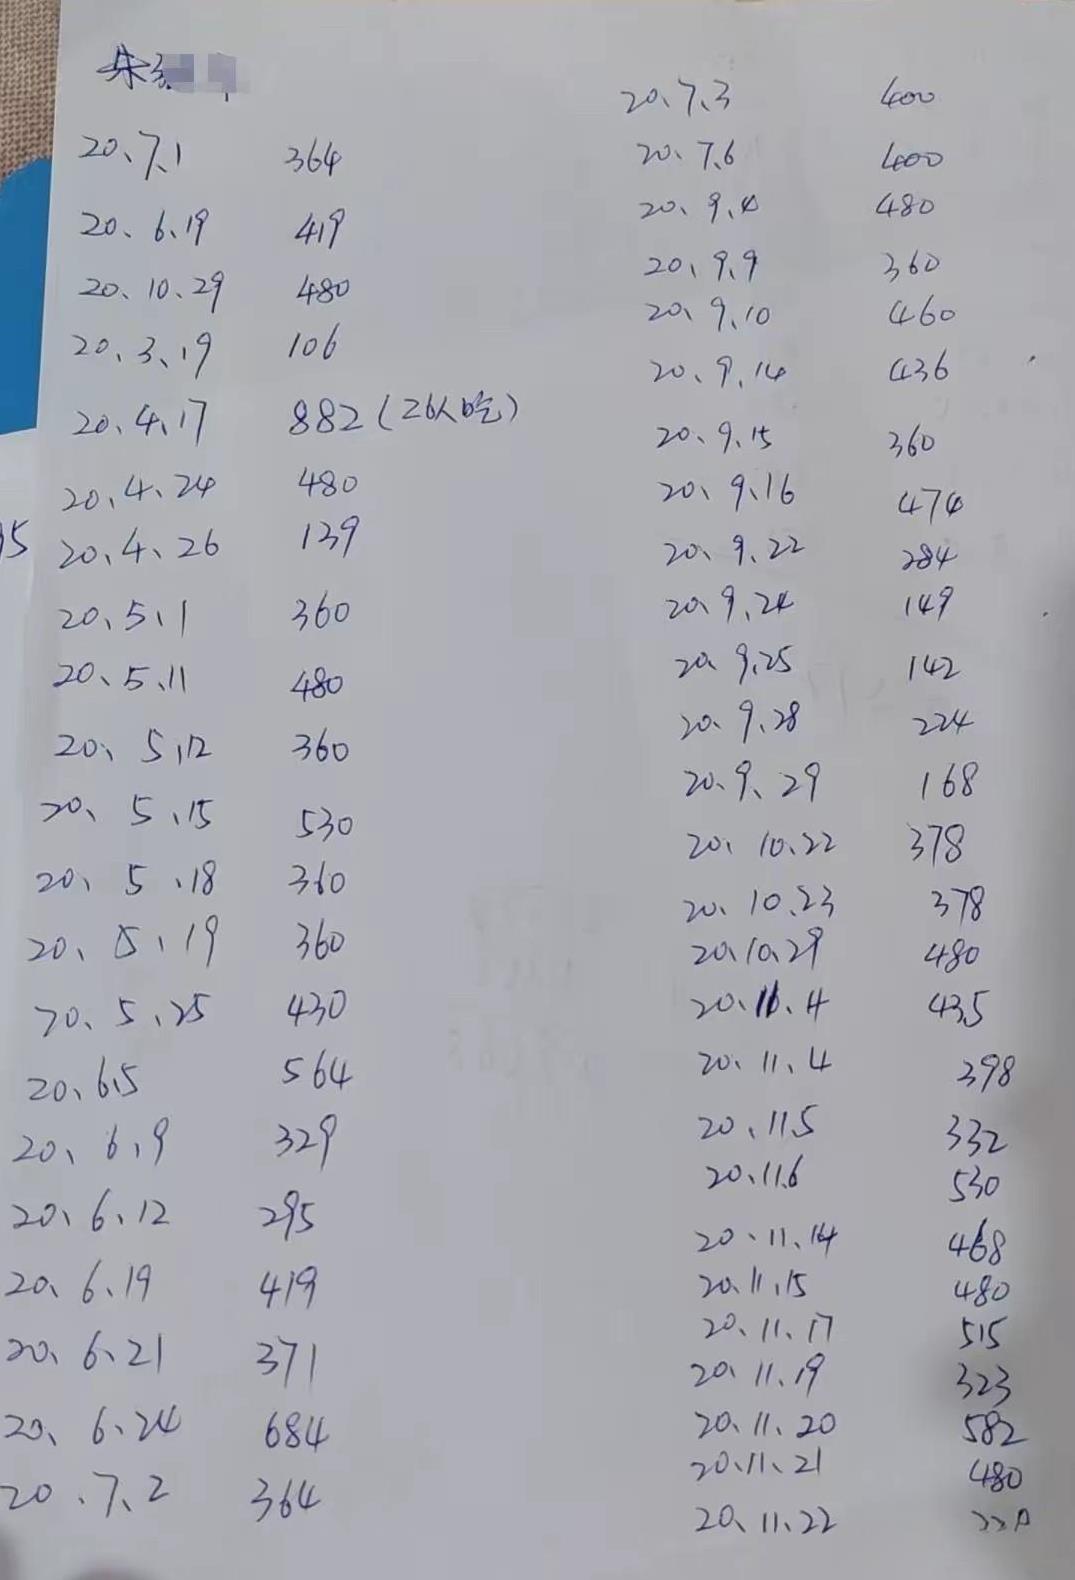 朱
20、7、1 364
20、6、19 419
20、10、29 480
20、3、19 106
20、4、17 882(26人吃)
20、4、24 480
20、4、26 139
20、5、1 360
20、5、11 480
20、5、12 360
20、5、15 530
20、5、18 360
20、5、19 360
20、5、25 430
20、6、5 564
20、6、9 329
20、6、12 295
20、6、19 419
20、6、21 371
20、6、24 684
20、7、2 364
20、7、3 400
20、7、6 400
20、9、4 480
20、9、9 360
20、9、10 460
20、9、14 436
20、9、15 360
20、9、16 474
20、9、22 284
20、9、24 149
20、9、25 142
20、9、28 224
20、9、29 168
20、10、22 378
20、10、23 378
20、10、29 480
20、11、4 435
20、11、4 398
20、11、5 332
20、11、6 530
20、11、14 468
20、11、15 480
20、11、17 515
20、11、19 323
20、11、20 582
20、11、21 480
20、11、22